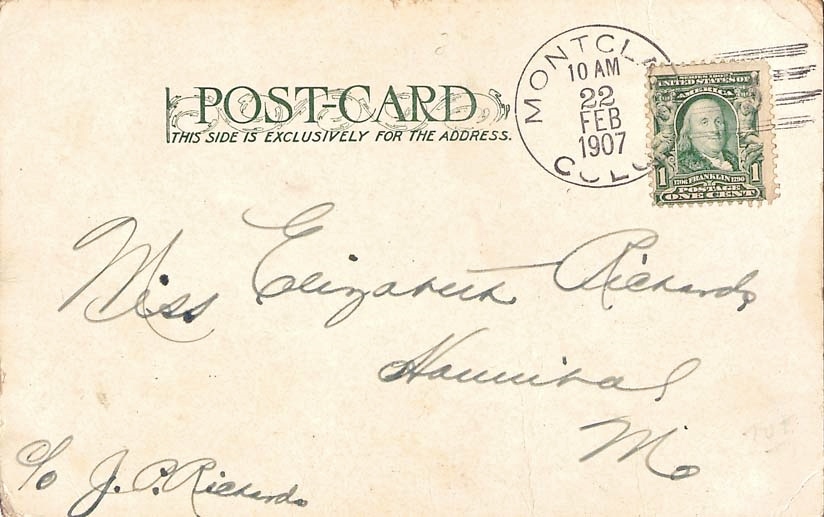 POST-CARD
THIS SIDE IS EXCLUSIVELY FOR THE ADDRESS.
MONTCLA
10 AM
22
FEB
1907
COLO
SERIES 1902
UNITED STATES OF
AMERICA
1 1706 FRANKLIN 1790 1
POSTAGE
ONE CENT
Miss Elizabeth Richards
Hannibal
Mo
c/o J. P. Richards